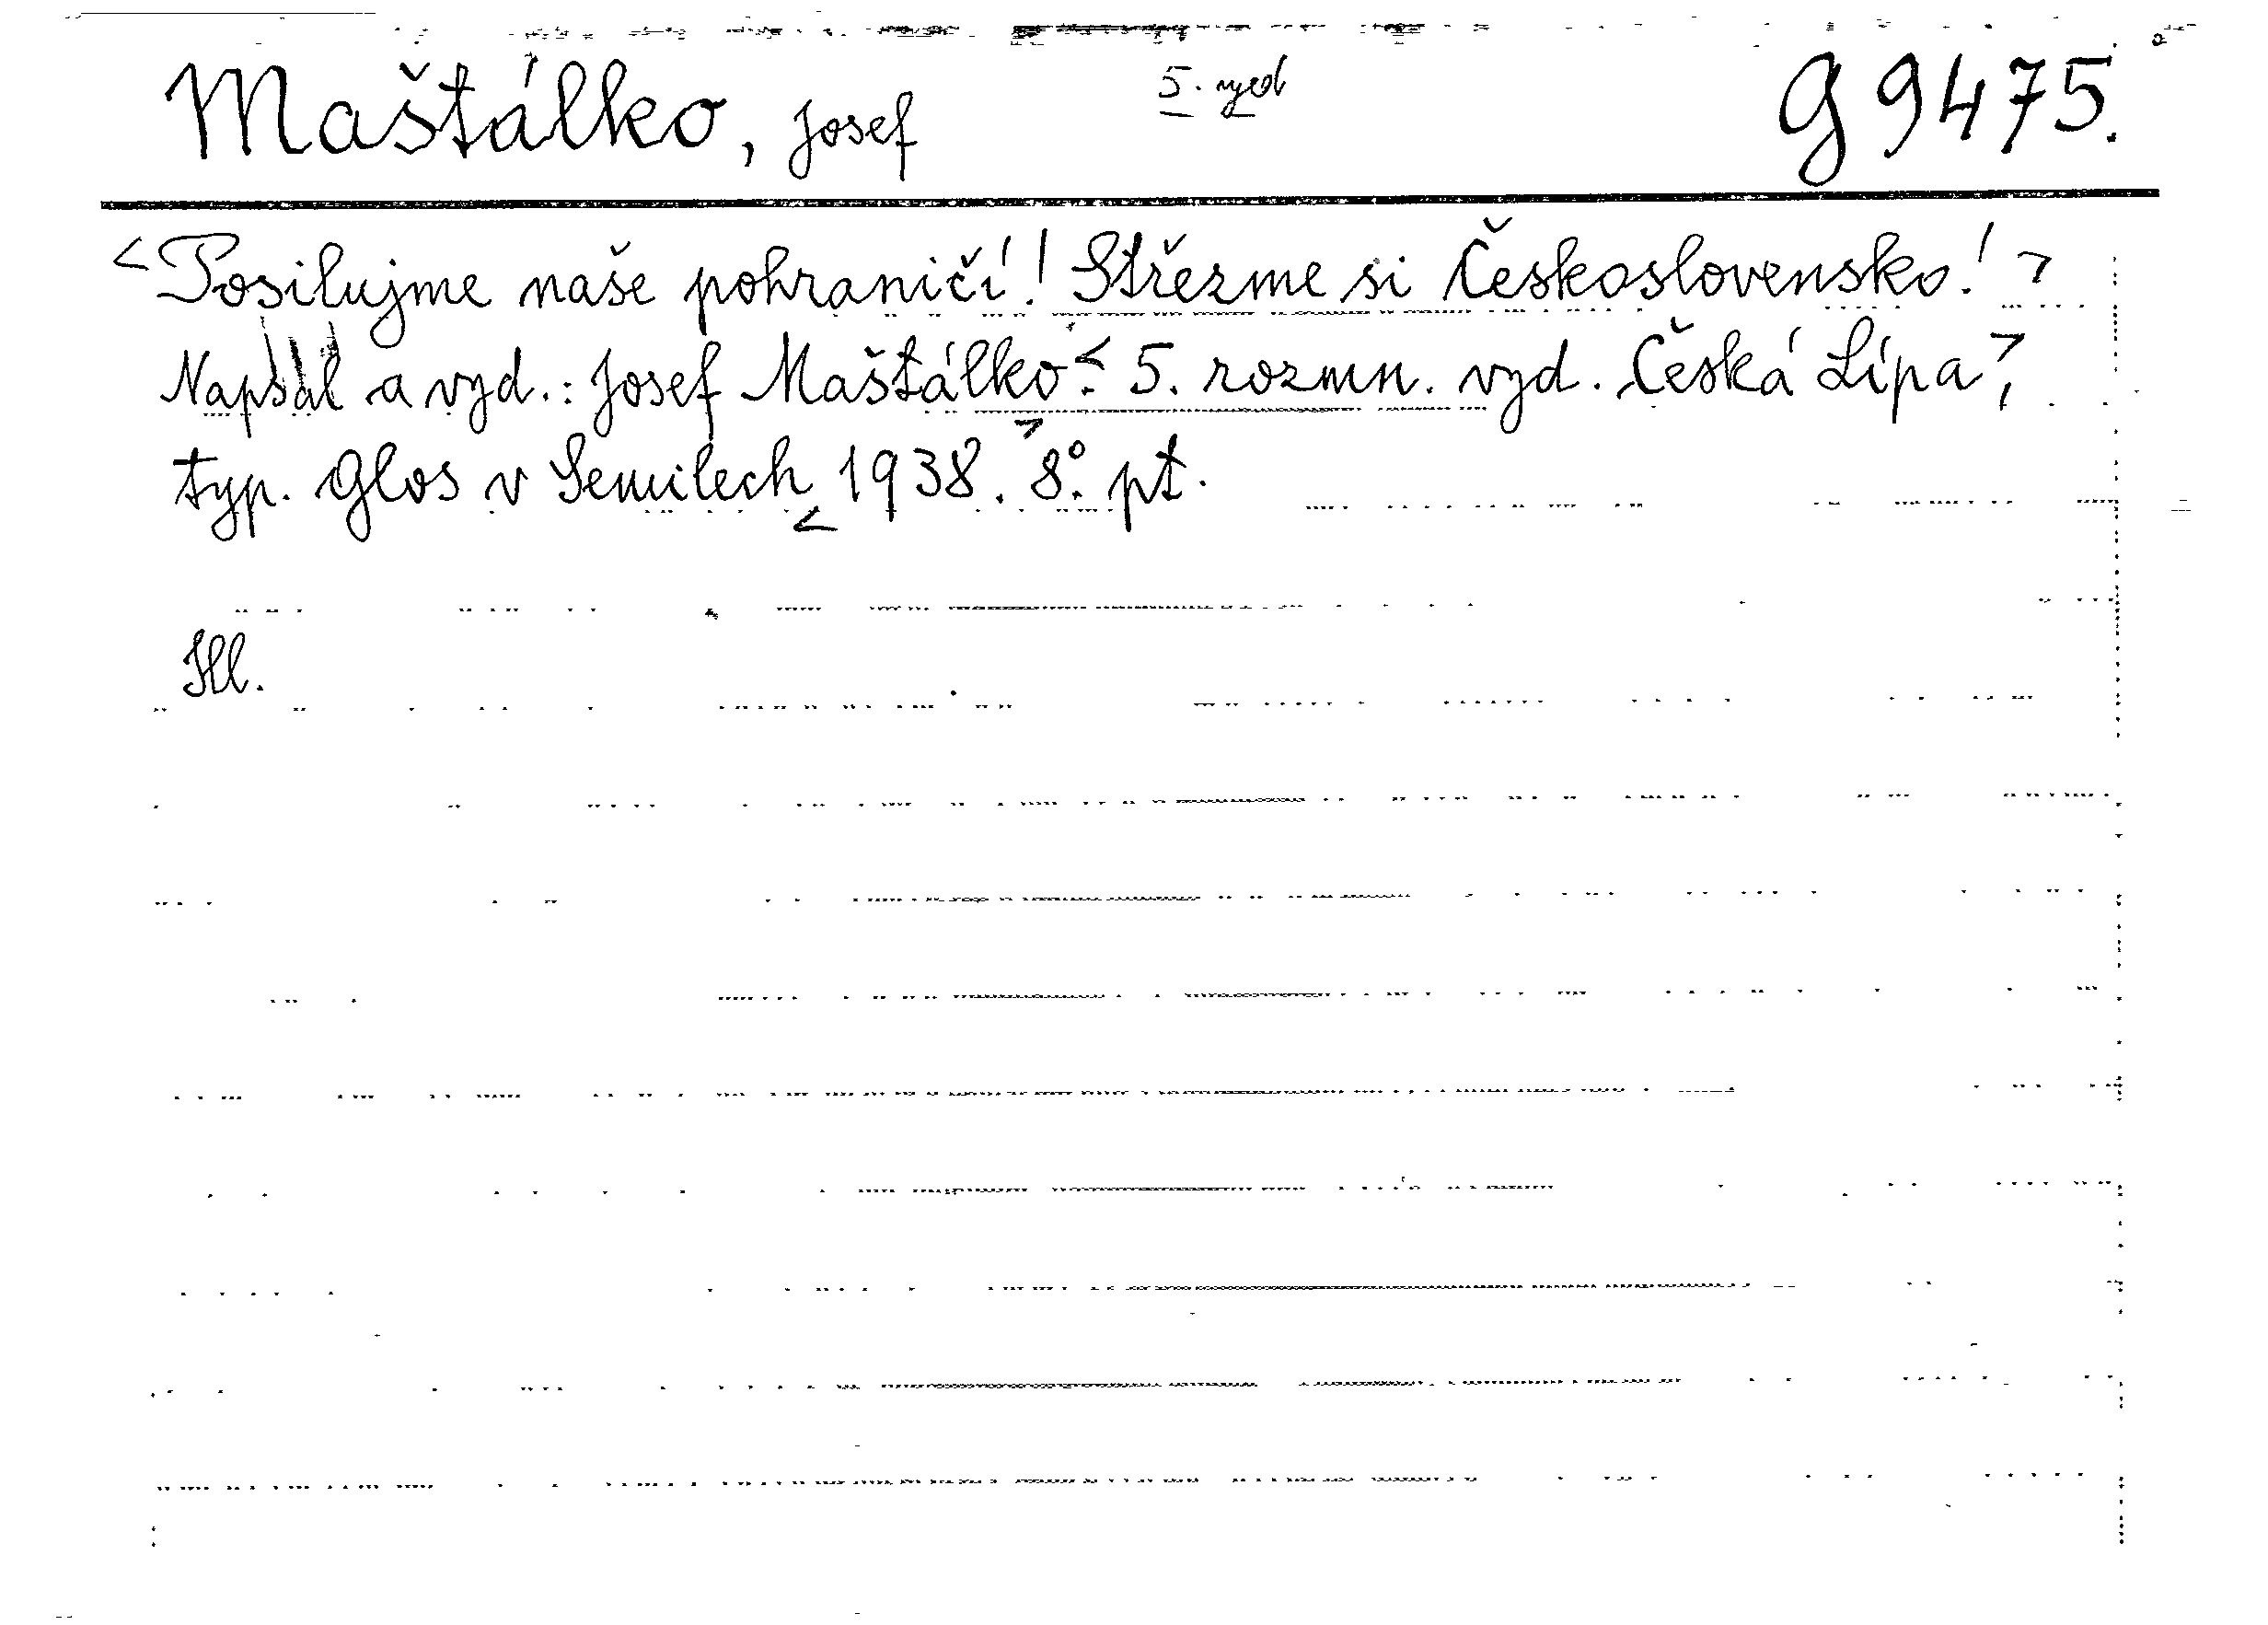 Maštálko, Josef 5. vyd G 9475.
<Posilujme naše pohraničí! Střezme si Československo!>
Napsal a vyd.: Josef Maštálko.< 5. rozmn. vyd. Česká Lípa>,
typ. Glos v Semilech < 1938.> 8°. pt.
Hl.